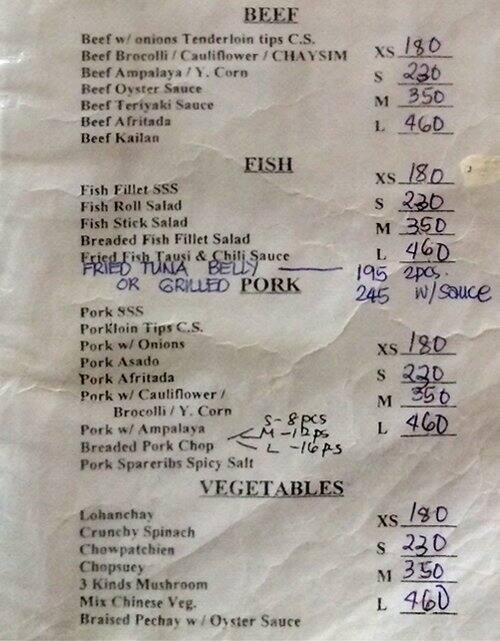 BEEF
Beef w/ onions Tenderloin tips C.S.
Beef Brocolli / Cauliflower / CHAYSIM XS 180
Beef Ampalaya / Y. Corn S 230
Beef Oyster Sauce
Beef Teriyaki Sauce M 350
Beef Afritada L 460
Beef Kailan
FISH
XS 180
Fish Fillet SSS
Fish Roll Salad S 230
Fish Stick Salad M 350
Breaded Fish Fillet Salad
Fried Fish Tausi & Chili Sauce L 460
FRIED TUNA BELLY 195 2pcs.
OR GRILLED 245 w/sauce
PORK
Pork SSS
Porkloin Tips C.S.
Pork w/ Onions XS 180
Pork Asado
Pork Afritada S 230
Pork w/ Cauliflower / M 350
Brocolli / Y. Corn
S- 8pcs
Pork w/ Ampalaya M -12ps L 460
Breaded Pork Chop L -16ps
Pork Spareribs Spicy Salt
VEGETABLES
Lohanchay XS 180
Crunchy Spinach
Chowpatchien S 230
Chopsuey
3 Kinds Mushroom M 350
Mix Chinese Veg. L 460
Braised Pechay w/ Oyster Sauce